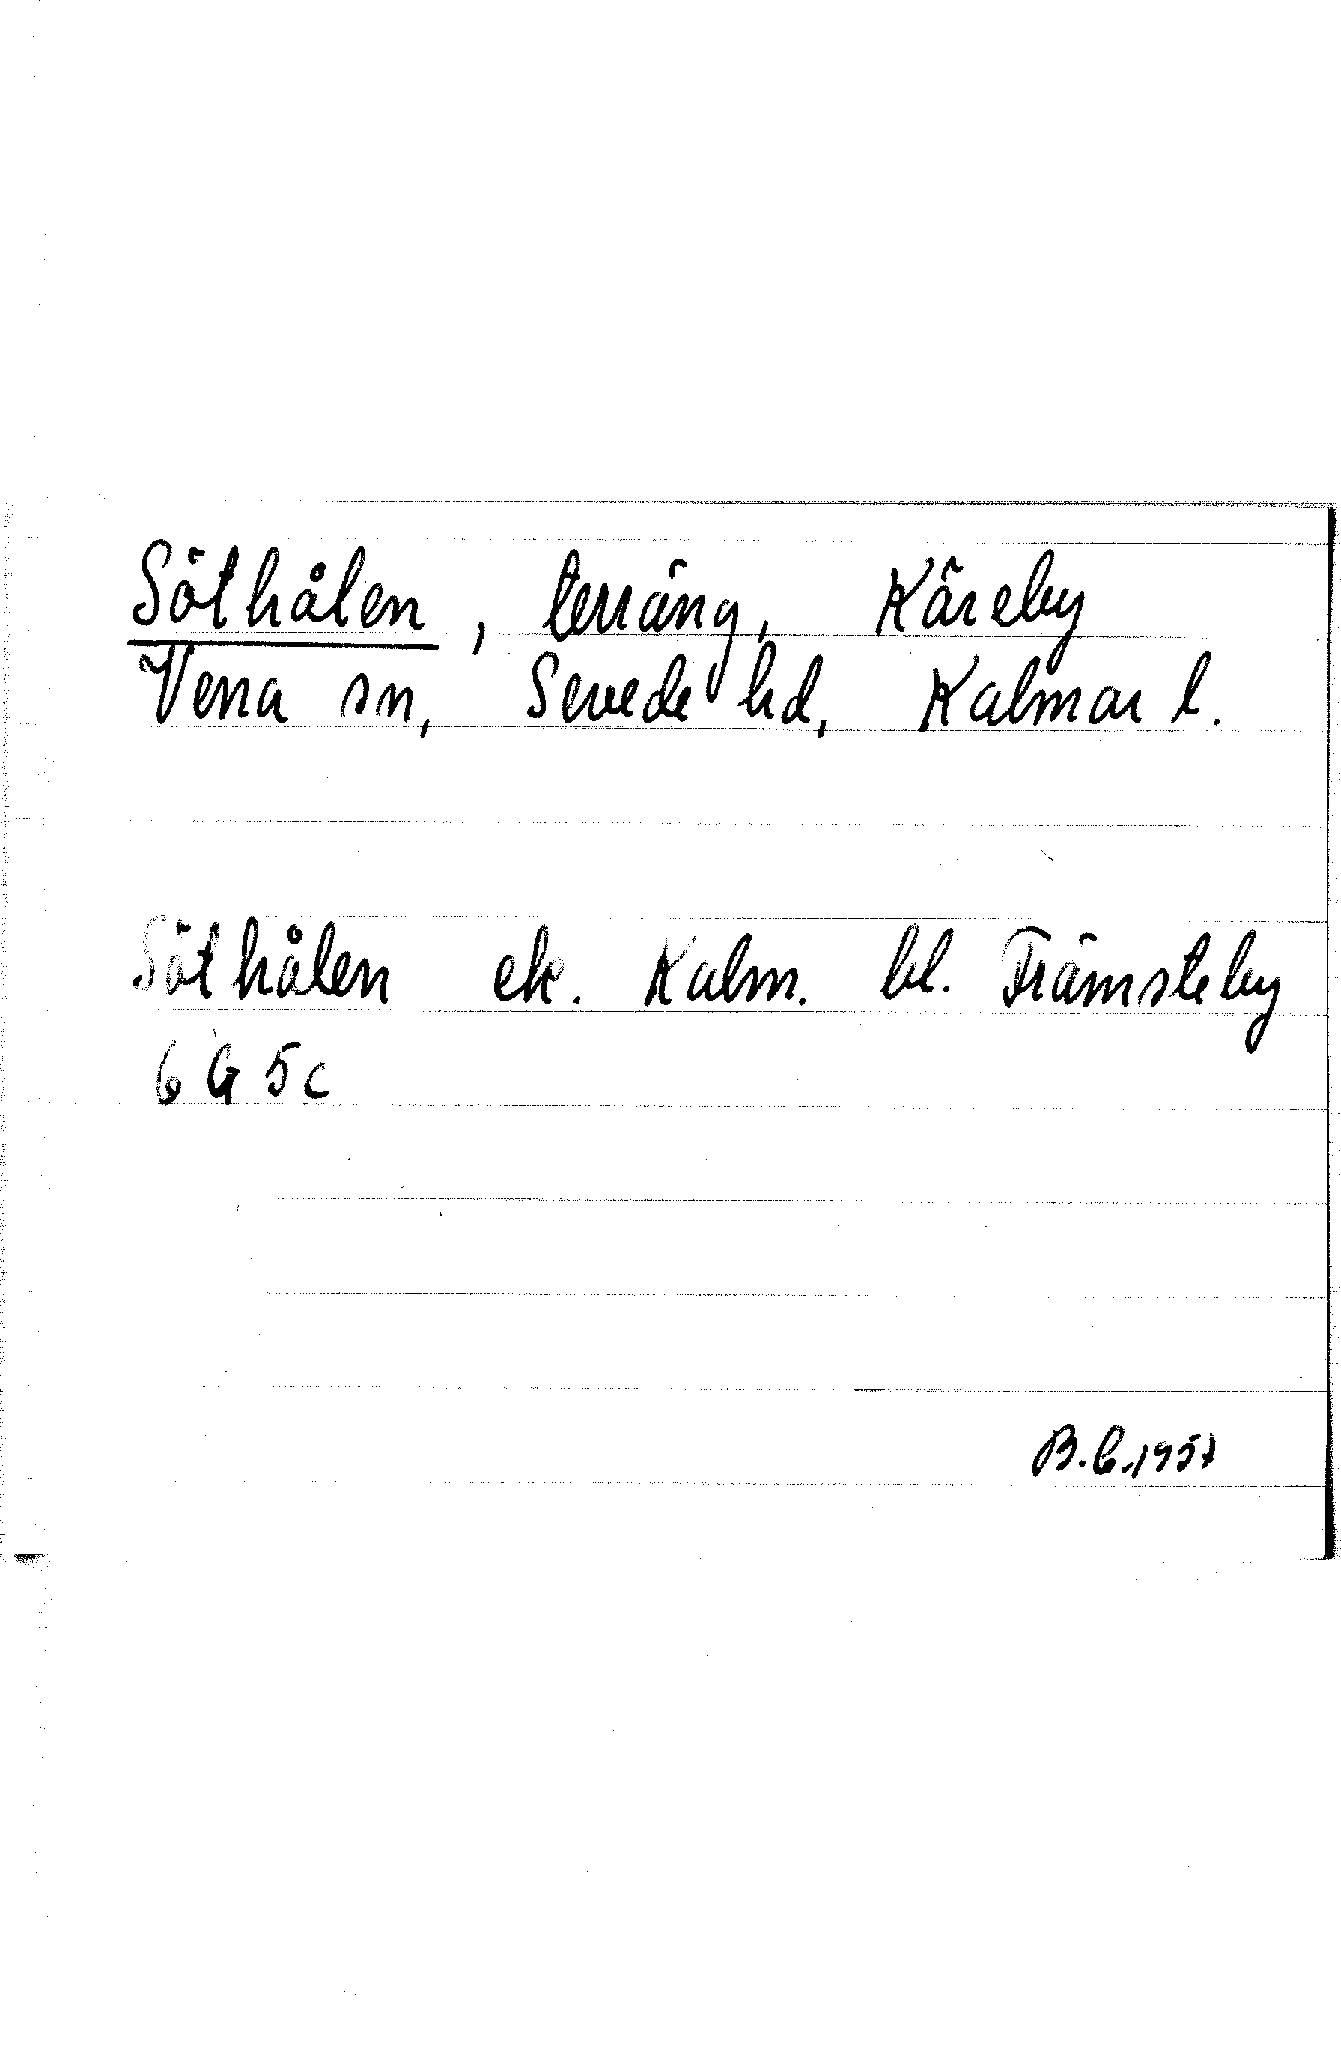 Söthålen, terräng, Käreby
Vena sn, Sevede hd, Kalmar l.
Söthålen ek. Kalm. bl. Främsteby
6 G 5c
B.C.1957